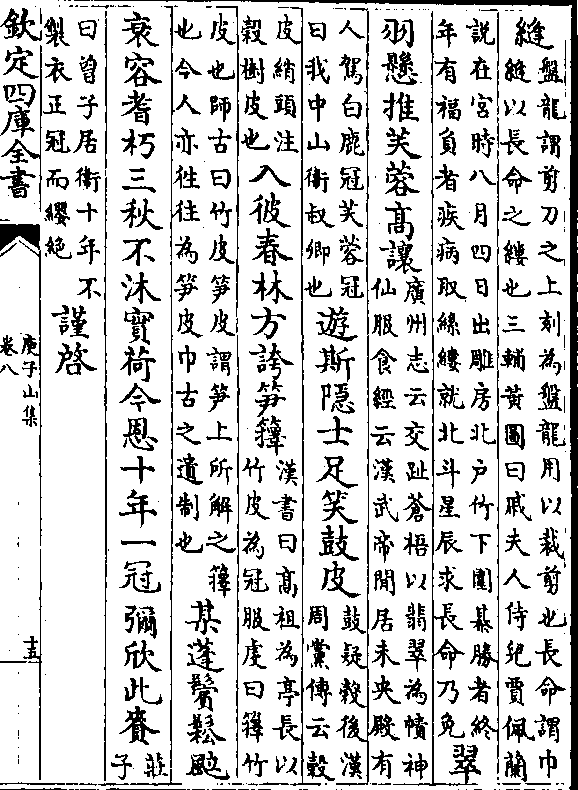 縫
盤龍謂剪刀之上刻為盤龍用以裁剪也長命謂巾
縫以長命之縷也三輔黃圖曰戚夫人侍兒賈佩蘭
說在宮時八月四日出雕房北戶竹下圍棊勝者終
年有福負者疾病取絲縷就北斗星辰求長命乃免
翠
羽懸推芙蓉高讓
廣州志云交趾蒼梧以翡翠為幘神
仙服食經云漢武帝閒居未央殿有
人駕白鹿冠芙蓉冠
曰我中山衛叔卿也
遊斯隠士足笑鼓皮
鼓疑榖後漢
周黨傳云榖
皮綃頭注
榖樹皮也
入彼春林方誇笋籜
漢書曰高祖為亭長以
竹皮為冠服虔曰籜竹
皮也師古曰竹皮笋皮謂笋上所解之籜
也今人亦徃徃為笋皮巾古之遺制也
某蓬鬢鬆颸
衰容耆朽三秋不沐實荷今恩十年一冠彌欣此賚
莊
子
曰曽子居衛十年不
製衣正冠而纓絶
謹啓
欽定四庫全書
庾子山集
卷八
十五